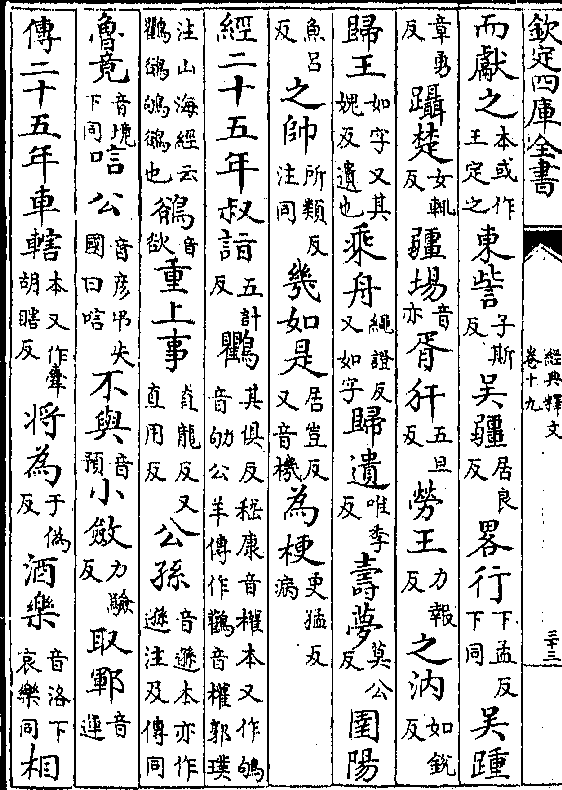 欽定四庫全書 經典釋文 卷十九 三十三
而獻之本或作王定之東訾子斯反吳疆居良反畧行下孟反下同吳踵
章勇反躡楚女輒反疆埸音亦胥犴五旦反勞王力報反之汭如銳反
歸王如字又其媿反遺也乘舟繩證反又如字歸遺唯季反壽夢莫公反圉陽
魚呂反之帥所類反注同幾如是居豈反又音機為梗更猛反病
經二十五年叔詣五計反鸜其俱反嵇康音權本又作鴝音劬公羊傳作鸛音權郭璞
注山海經云鸜鵒鴝鵒也鵒音欲重上事直龍反又直用反公孫音遜本亦作遜注及傳同
魯竟音境下同唁公音彥弔失國曰唁不與音預小斂力驗反取鄆音運
傳二十五年車轄本又作舝胡瞎反將為于偽反酒樂音洛下哀樂同相